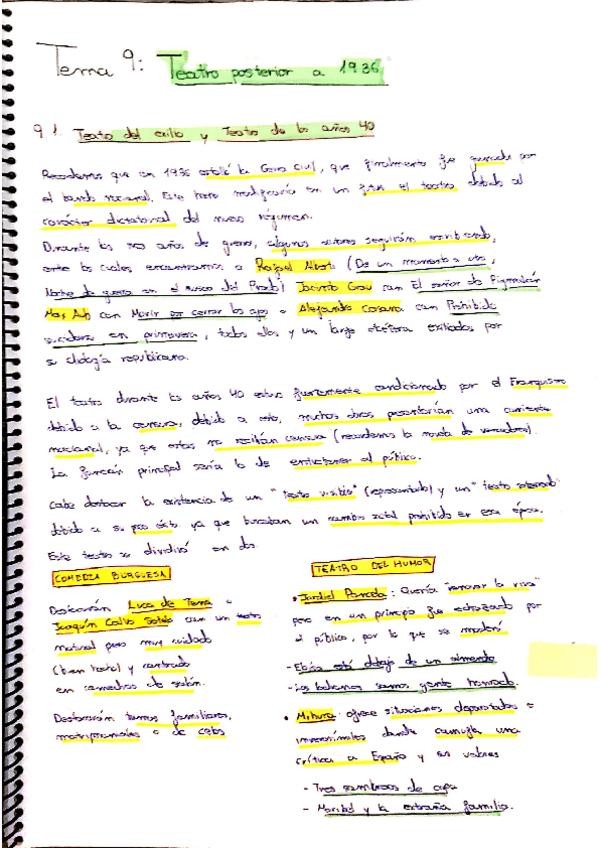 Tema 9: Teatro posterior a 1936
9.1. Teatro del exilio y Teatro de los años 40
Recordemos que en 1936 estalló la Guerra Civil, que finalmente fue ganada por
el bando nacional. Este hecho modificaría en un futuro el teatro debido al
carácter dictatorial del nuevo régimen.
Durante los tres años de guerra, algunos autores seguirán escribiendo,
entre los cuales encontramos a Rafael Alberti (De un momento a otro,
Noche de guerra en el museo del Prado) Jacinto Grau con El señor de Pigmalión
Max Aub con Morir por cerrar los ojos o Alejandro Casona con Prohibido
suicidarse en primavera, todos ellos y un largo etcétera exiliados por
su ideología republicana.
El teatro durante los años 40 estuvo fuertemente condicionado por el Franquismo
debido a la censura, debido a esto, muchas obras presentarían una
nacional, ya que estas no recibían censura (recordemos la novela de vencedores).
La función principal sería la de entretener al público.
Cabe destacar la existencia de un "teatro visible" (representado) y un "teatro soterrado"
debido a su poco éxito ya que buscaban un cambio social prohibido en esa época.
Este teatro se dividió en dos.
COMEDIA BURGUESA
Destacarán Luca de Tena o
Joaquín Calvo Sotelo con un teatro
pero muy cuidado
(bien hecho) y centrado
en comedias de salón.
Destacarán temas familiares,
matrimoniales o de celos
TEATRO DEL HUMOR
• Jardiel Poncela: Quería "renovar la risa"
pero en un principio fue rechazado por
el público, por lo que se moderó
- Eloísa está debajo de un almendro
- Los ladrones somos gente honrada.
• Mihura: ofrece situaciones disparatadas e
inverosímiles donde camufla una
crítica a España y sus valores
- Tres sombreros de copa
- Maribel y la extraña familia.